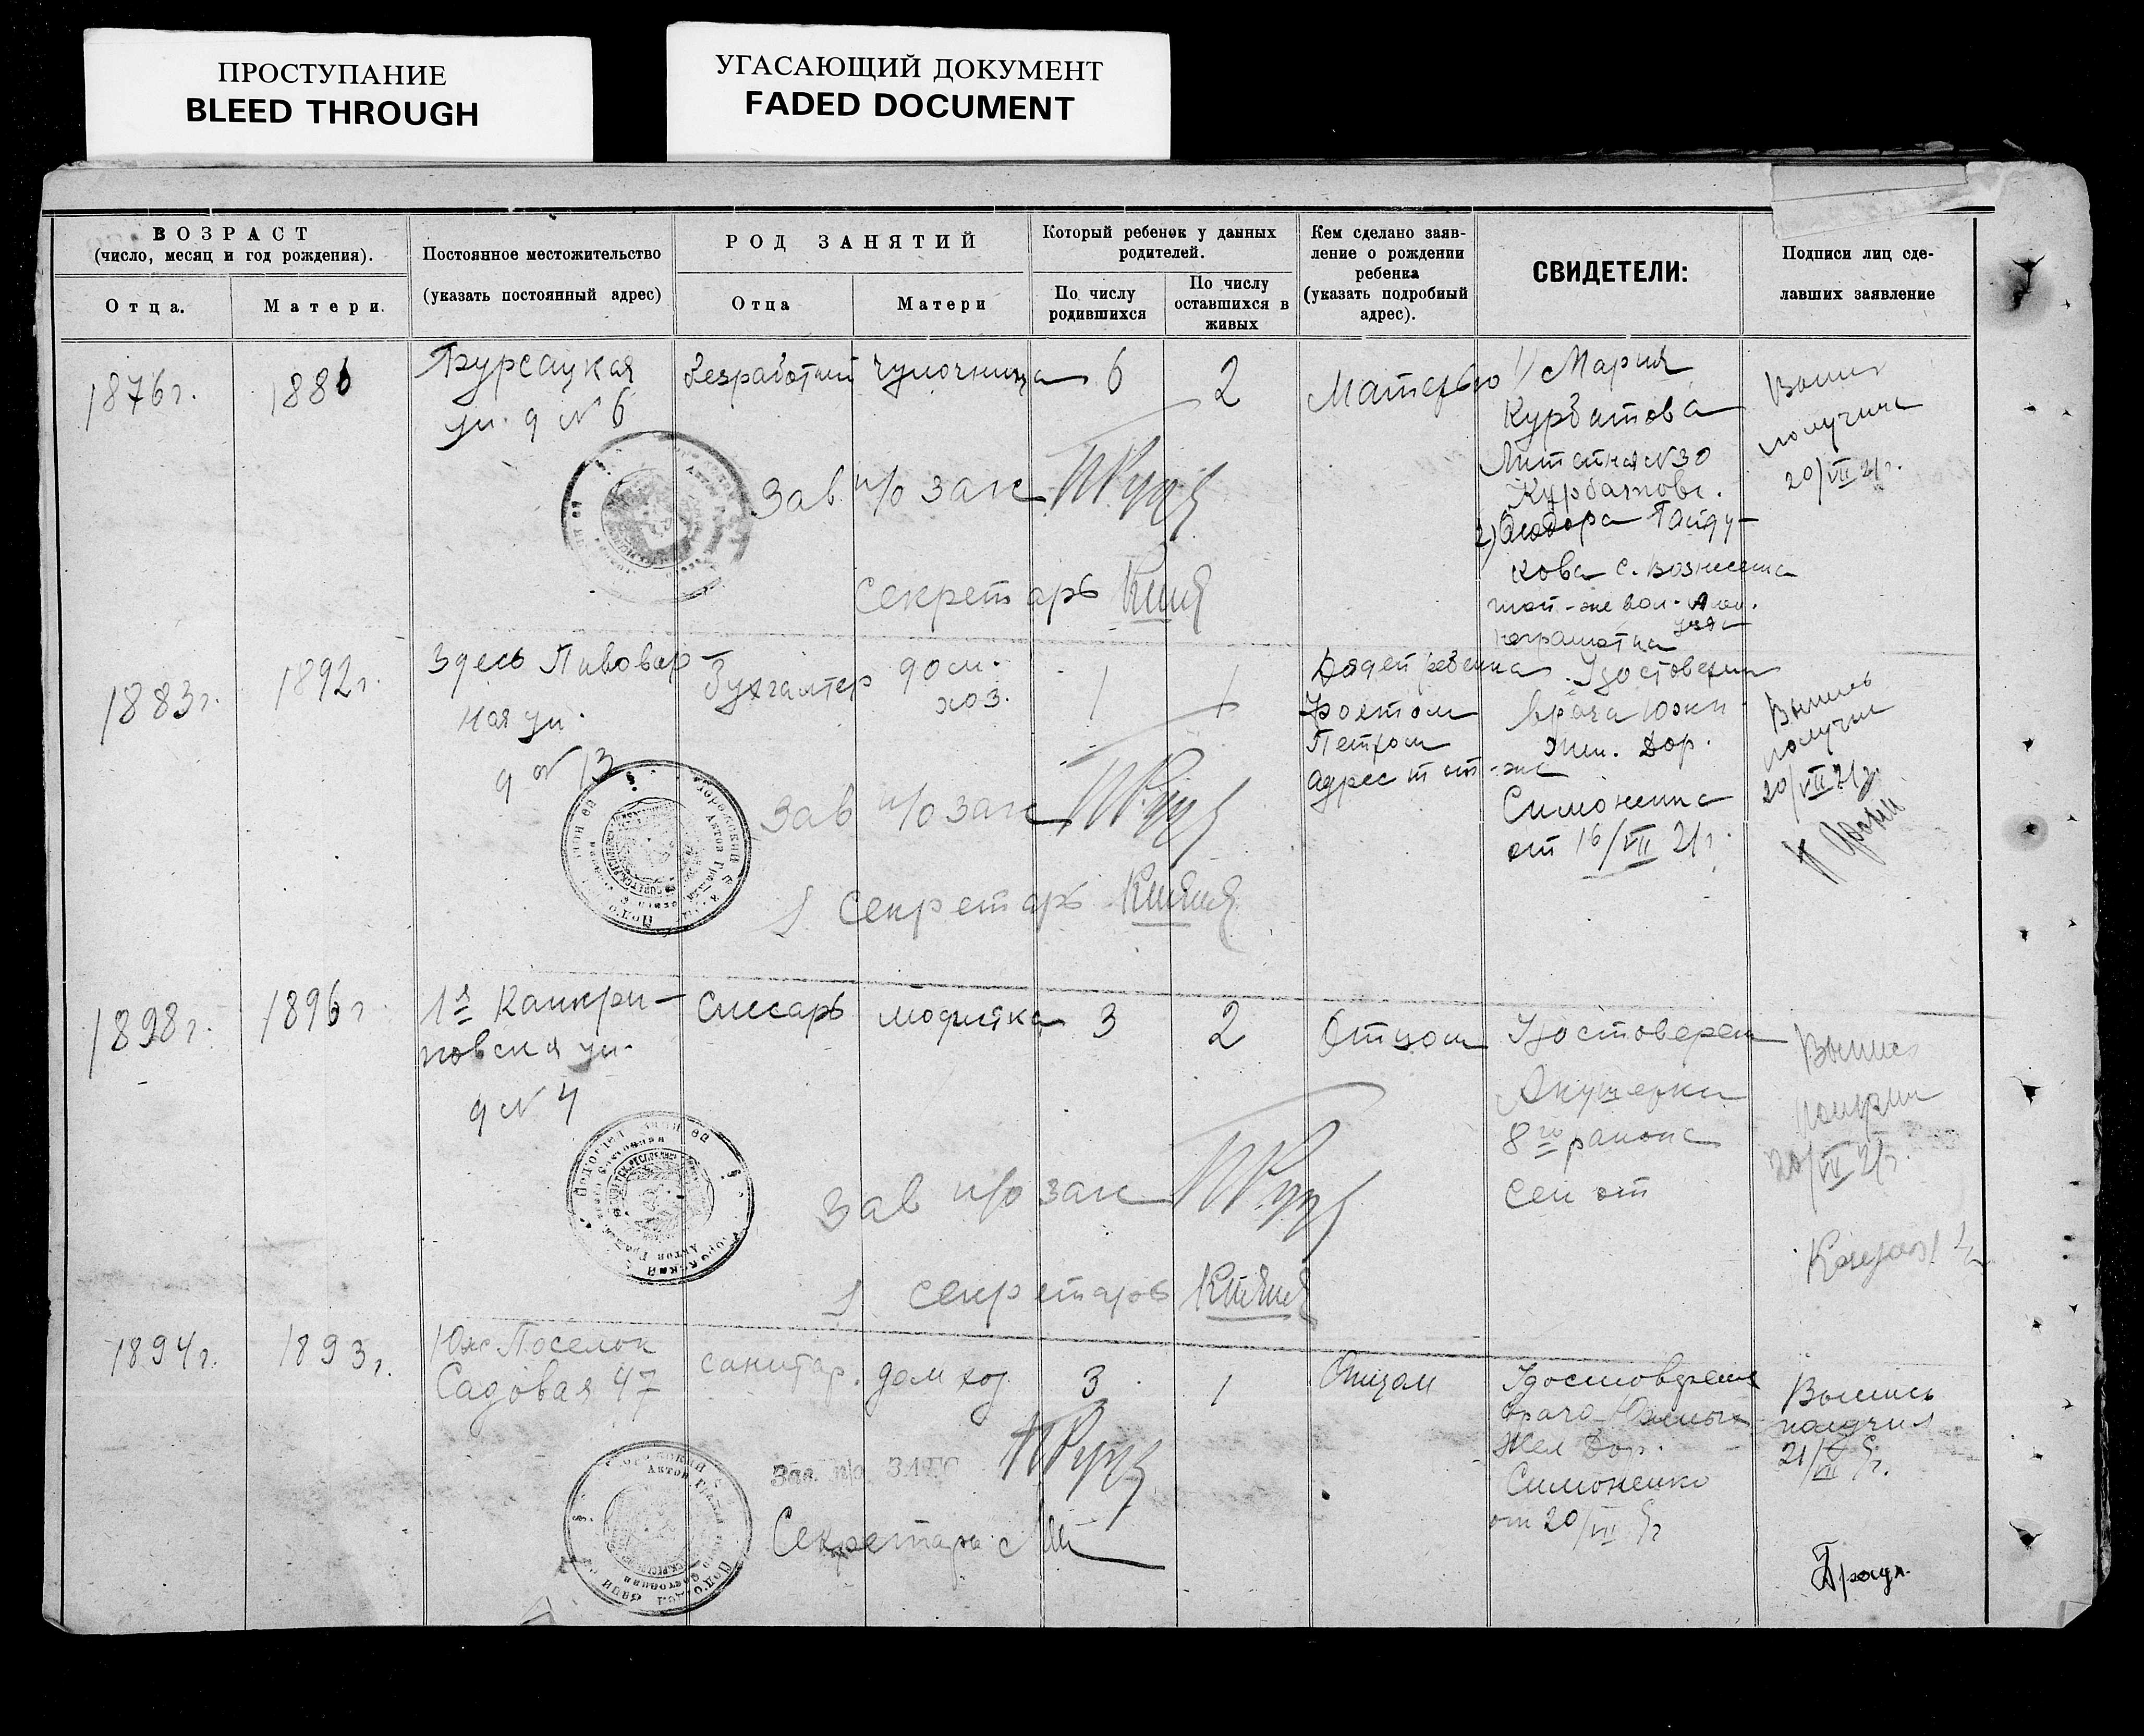 ПРОСТУПАНИЕ
BLEED THROUGH
УГАСАЮЩИЙ ДОКУМЕНТ
FADED DOCUMENT
ВОЗРАСТ
(число, месяц и год рождения).
Отца.
Матери.
Постоянное местожительство
(указать постоянный адрес)
РОД ЗАНЯТИЙ
Отца
Матери
Который ребенок у данных
родителей.
По числу
родившихся
По числу
оставшихся в
живых
Кем сделано заяв-
ление о рождении
ребенка
(указать подробный
адрес).
СВИДЕТЕЛИ:
Подписи лиц сде-
лавших заявление
1876г.
1886
Бурсацкая
ул. д № 6
Безработный
чулочница
6
2
Матерью
1) Мария
Курбатова
№ 30
2)
кова с.
неграмотна
получила
20/VII 21г.
Зав п/о загс
Секретарь
1883г.
1892г.
Здесь Пивовар-
ная ул.
д № 13
Бухгалтер
дом.
хоз.
1
1
Дядей ребенка
Петром
адрес тот-же
Удостоверен
врача Южн
Жел. Дор.
Симоненко
от 16/VII 21г.
Выпись
получил
20/VII 21г.
Зав п/о загс
Секретарь
1898г.
1896г
1я Канкри-
новская ул.
д № 4
Слесарь
модистка
3
2
Отцом
Удостоверен
Акушерки
8го района
от
Выпись
получил
20/VII 21г.
Зав п/о загс
Секретарь
1894г.
1893г.
Юж Поселок
Садовая 47
санитар.
дом хоз.
3
1
Отцом
Удостоверения
врача Южных
Жел Дор.
Симоненко
от 20/VII
Выпись
получил
21/VII
Зав. п/о ЗАГС
Секретарь